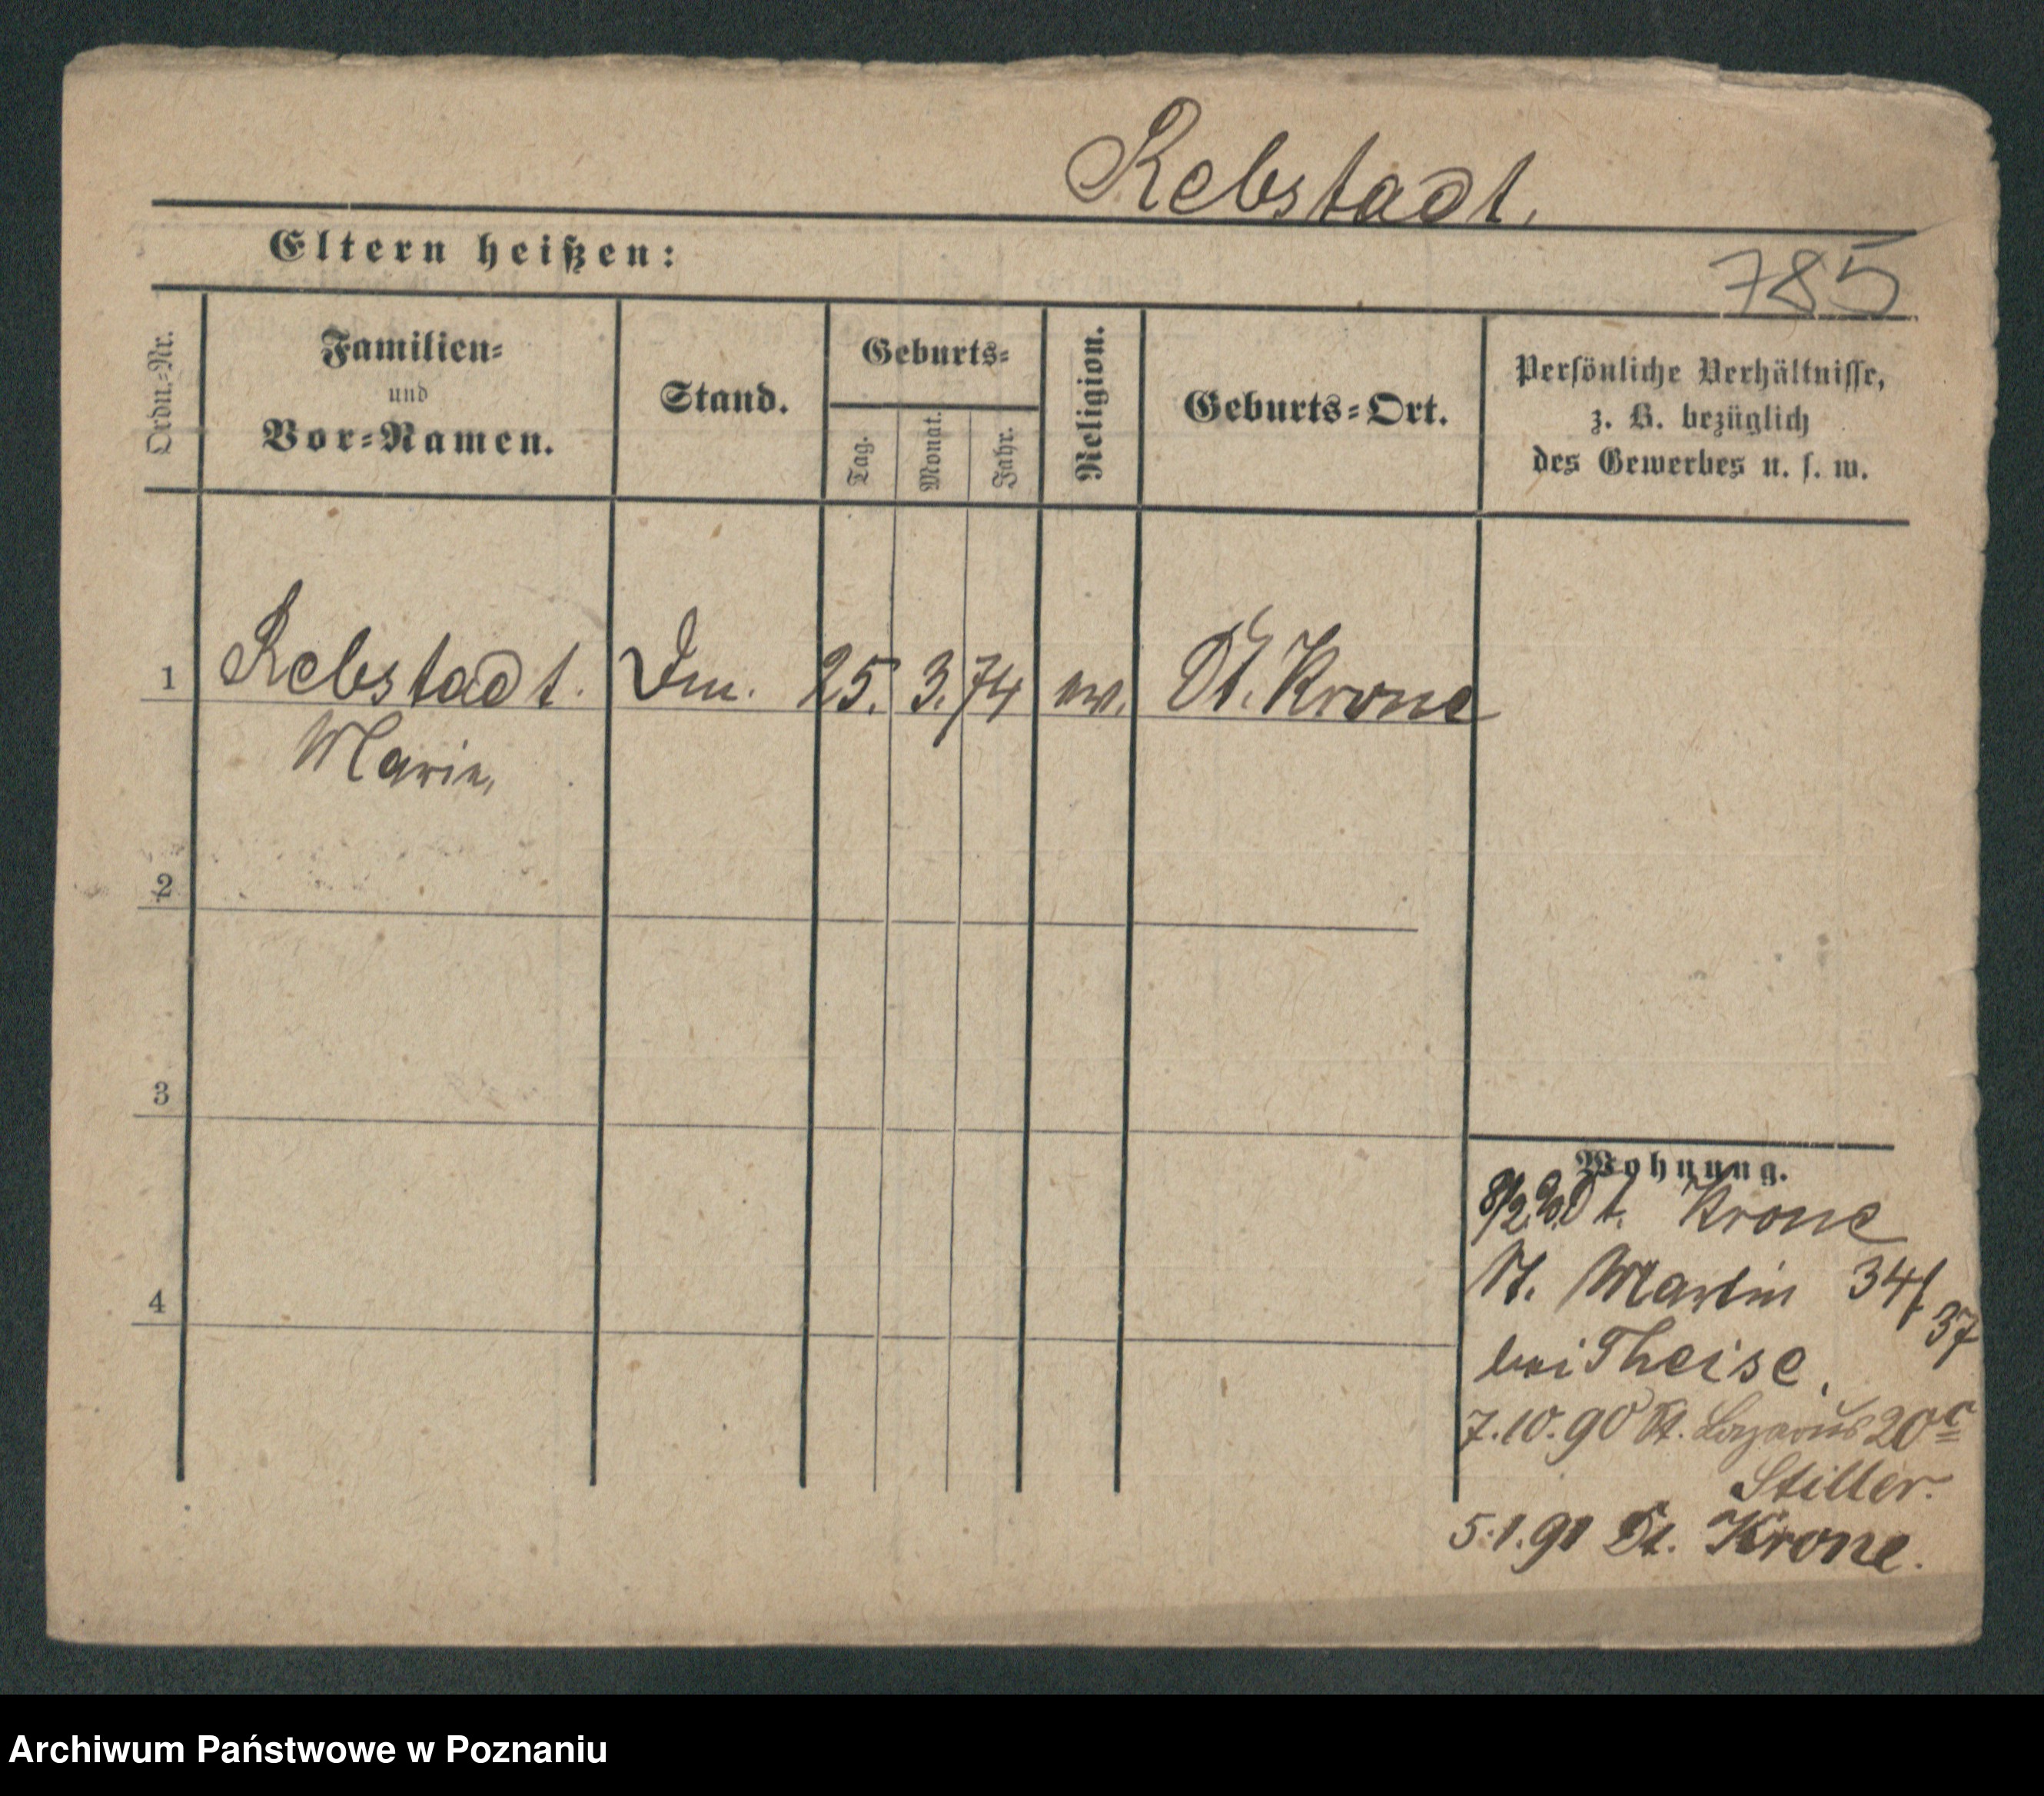 Rebstadt.
Eltern heißen:
785
Ordn.-Nr.
Familien-
und
Vor-Namen.
Stand.
Geburts-
Tag.
Monat.
Jahr.
Religion.
Geburts-Ort.
Persönliche Verhältnisse,
z. B. bezüglich
des Gewerbes u. s. w.
1 Rebstadt. 25. 3. 74 ev. Dt. Krone
Marie,
2
3
4
Wohnung.
8/2 90. Dt. Krone
St. Martin 34/37
bei Theise.
7.10.90 St. Lazarus 20c
Stiller.
5.1.91 Dt. Krone.
Archiwum Państwowe w Poznaniu